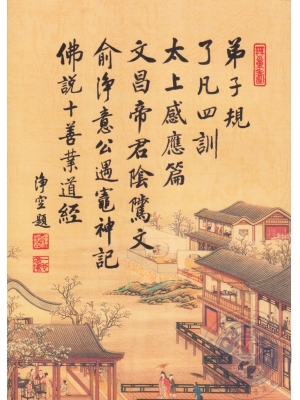 弟子規
了凡四訓
太上感應篇
文昌帝君陰騭文
俞淨意公遇竈神記
佛說十善業道經
淨空題